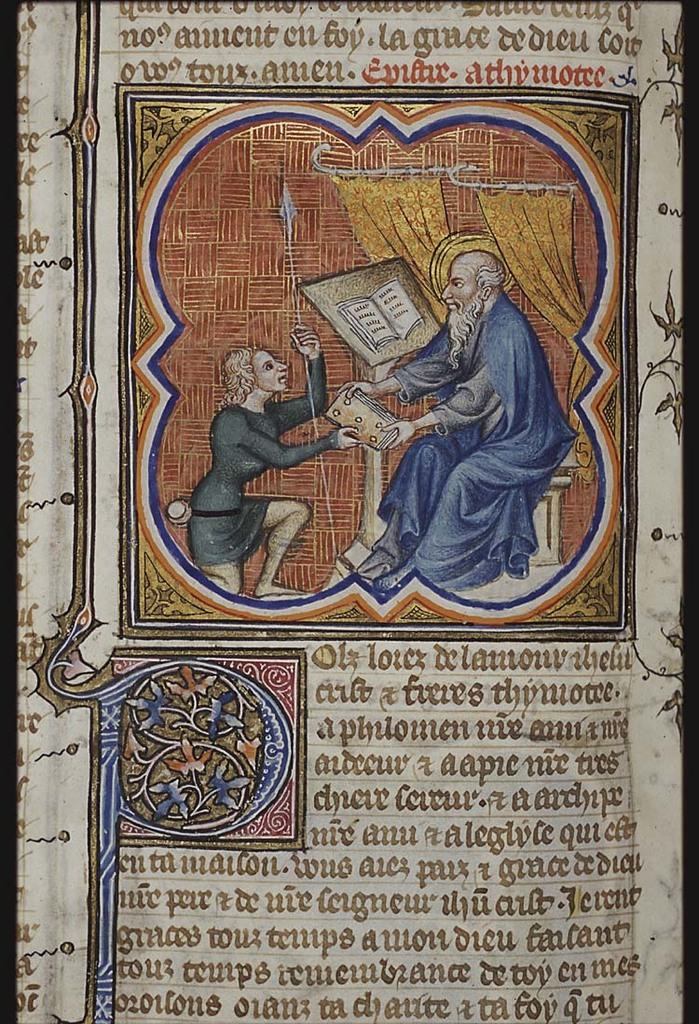 nos auuient en foy. la grace de dieu soit
o voꝰ touz. amen. Epistre. a thymotee
Pols loiez de lamour ihesu
crist ⁊ freres thymotee.
a philomen nr̃e ami ⁊ nr̃e
aideeur ⁊ a apie nr̃e tres
chiere sereur. ⁊ a archipe
nr̃e ami ⁊ a leglyse qui est
en ta maison. vous aiez paix ⁊ grace de dieu
nr̃e pere ⁊ de nr̃e seigneur ihũ crist. Je rent
graces touz temps a mon dieu faisant
touz temps remembrance de toy en mes
oroisons oianz ta charite ⁊ ta foy q̃ tu